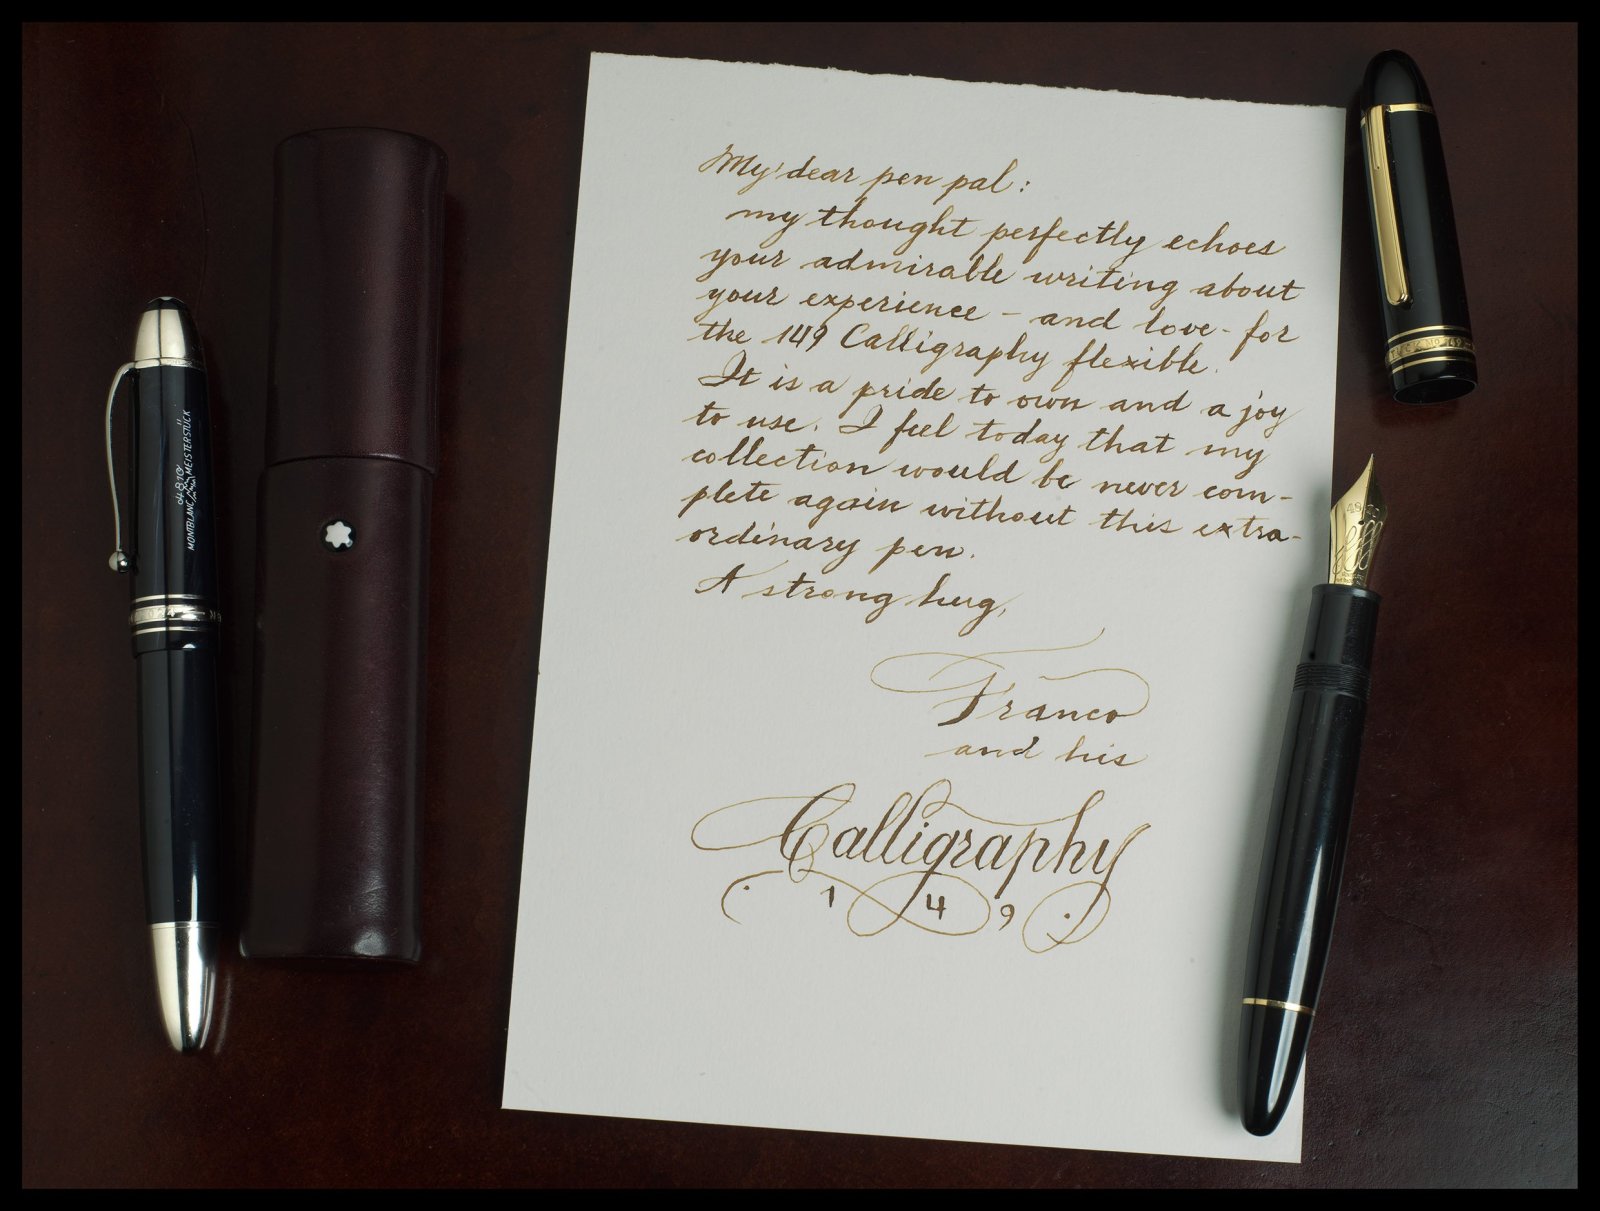 My dear pen pal:
my thought perfectly echoes
your admirable writing about
your experience - and love - for
the 149 Calligraphy flexible.
It is a pride to own and a joy
to use. I feel today that my
collection would be never com-
plete again without this extra-
ordinary pen.
A strong hug,
Franco
and his
Calligraphy
149
4810
MONTBLANC MEISTERSTÜCK